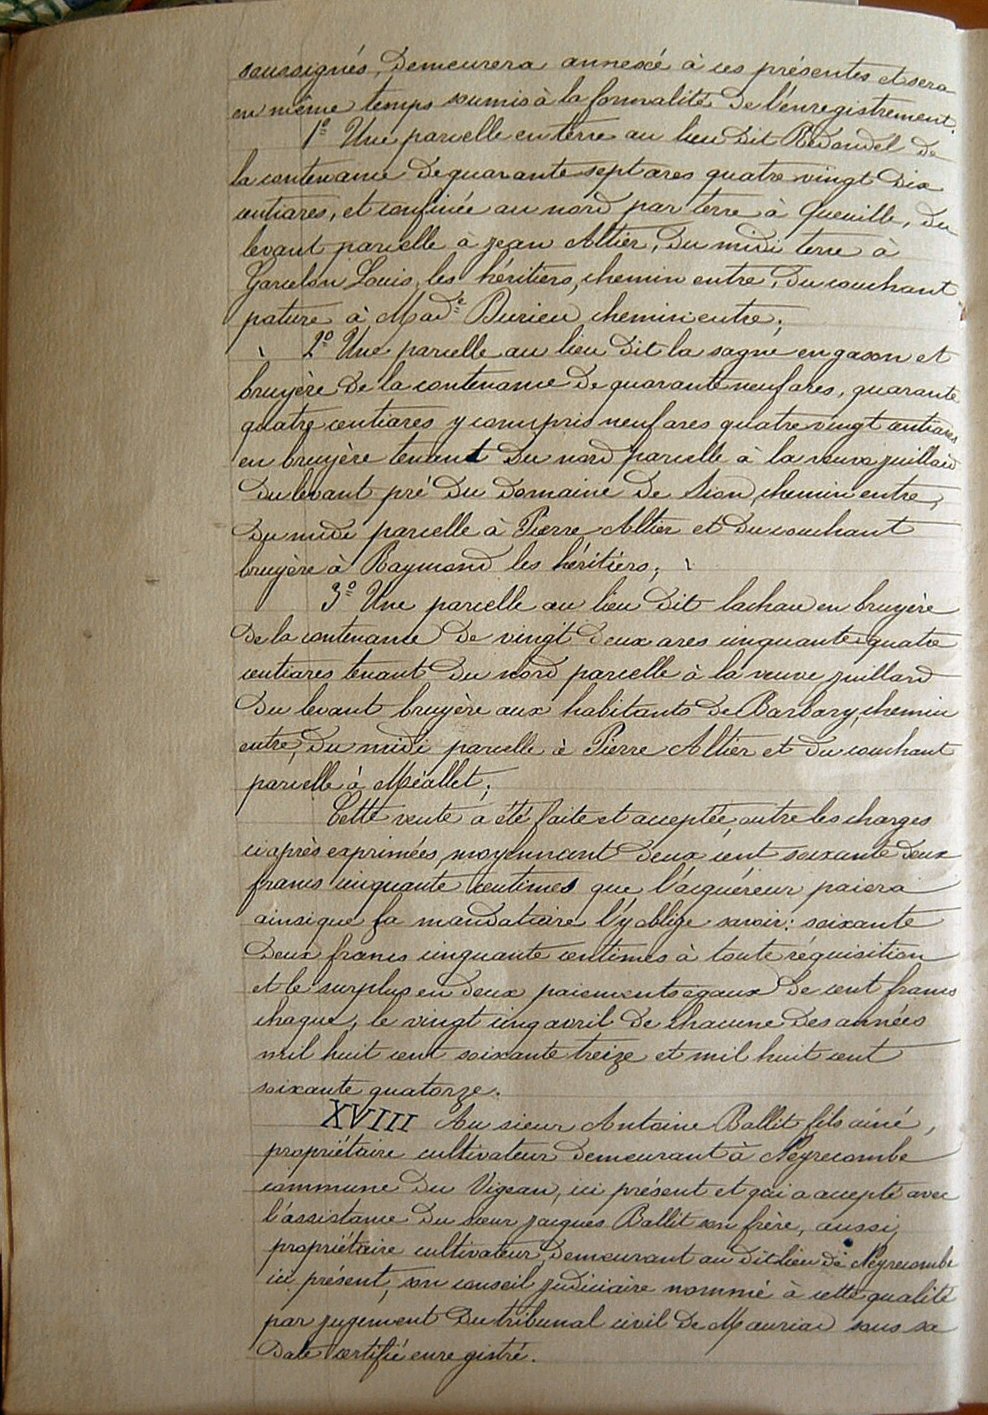 soussignés, demeurera annexé à ces présentes et sera
en même temps soumis à la formalité de l'enregistrement.
1º Une parcelle en terre au lieu dit Redondel de
la contenance de quarante sept ares quatre vingt dix
centiares, et confinée au nord par terre à Queuille, du
levant parcelle à Jean Altier, du midi terre à
Garcelon Louis, les héritiers, chemin entre, du couchant
pature à Mad.e Durieu chemin entre;
2º Une parcelle au lieu dit la sagne en gason et
bruyère de la contenance de quarante neuf ares, quarante
quatre centiares y compris neuf ares quatre vingt centiares
en bruyère tenant du nord parcelle à la veuve juillard
du levant pré du domaine de Sion, chemin entre,
du midi parcelle à Pierre Altier et du couchant
bruyère à Raymond les héritiers;
3º Une parcelle au lieu dit lachau en bruyère
de la contenance de vingt deux ares cinquante quatre
centiares tenant du nord parcelle à la veuve juillard
du levant bruyère aux habitants de Barbary, chemin
entre, du midi parcelle à Pierre Altier et du couchant
parcelle à Méallet;
Cette vente a été faite et acceptée, outre les charges
ci après exprimées, moyennant deux cent soixante deux
francs cinquante centimes que l'acquéreur paiera
ainsi que sa mandataire l'y oblige savoir: soixante
deux francs cinquante centimes à toute réquisition
et le surplus en deux paiements égaux de cent francs
chaque, le vingt cinq avril de chacune des années
mil huit cent soixante treize et mil huit cent
soixante quatorze.
XVIII Au sieur Antoine Ballit fils ainé,
propriétaire cultivateur demeurant à Neyrecombe
commune du Vigean, ici présent et qui a accepté avec
l'assistance du sieur jacques Ballit son frère, aussi
propriétaire cultivateur, demeurant au dit lieu de Neyrecombe
ici présent, son conseil judiciaire nommé à cette qualité
par jugement du tribunal civil de Mauriac sous sa
date certifié enregistré.